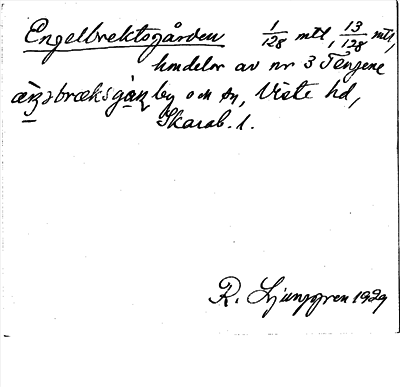 Engelbrektsgården 1/128 mtl, 13/128 mtl,
hmdelar av nr 3 Tengene
by och sn, Viste hd,
Skarab. l.
R. Ljunggren 1929